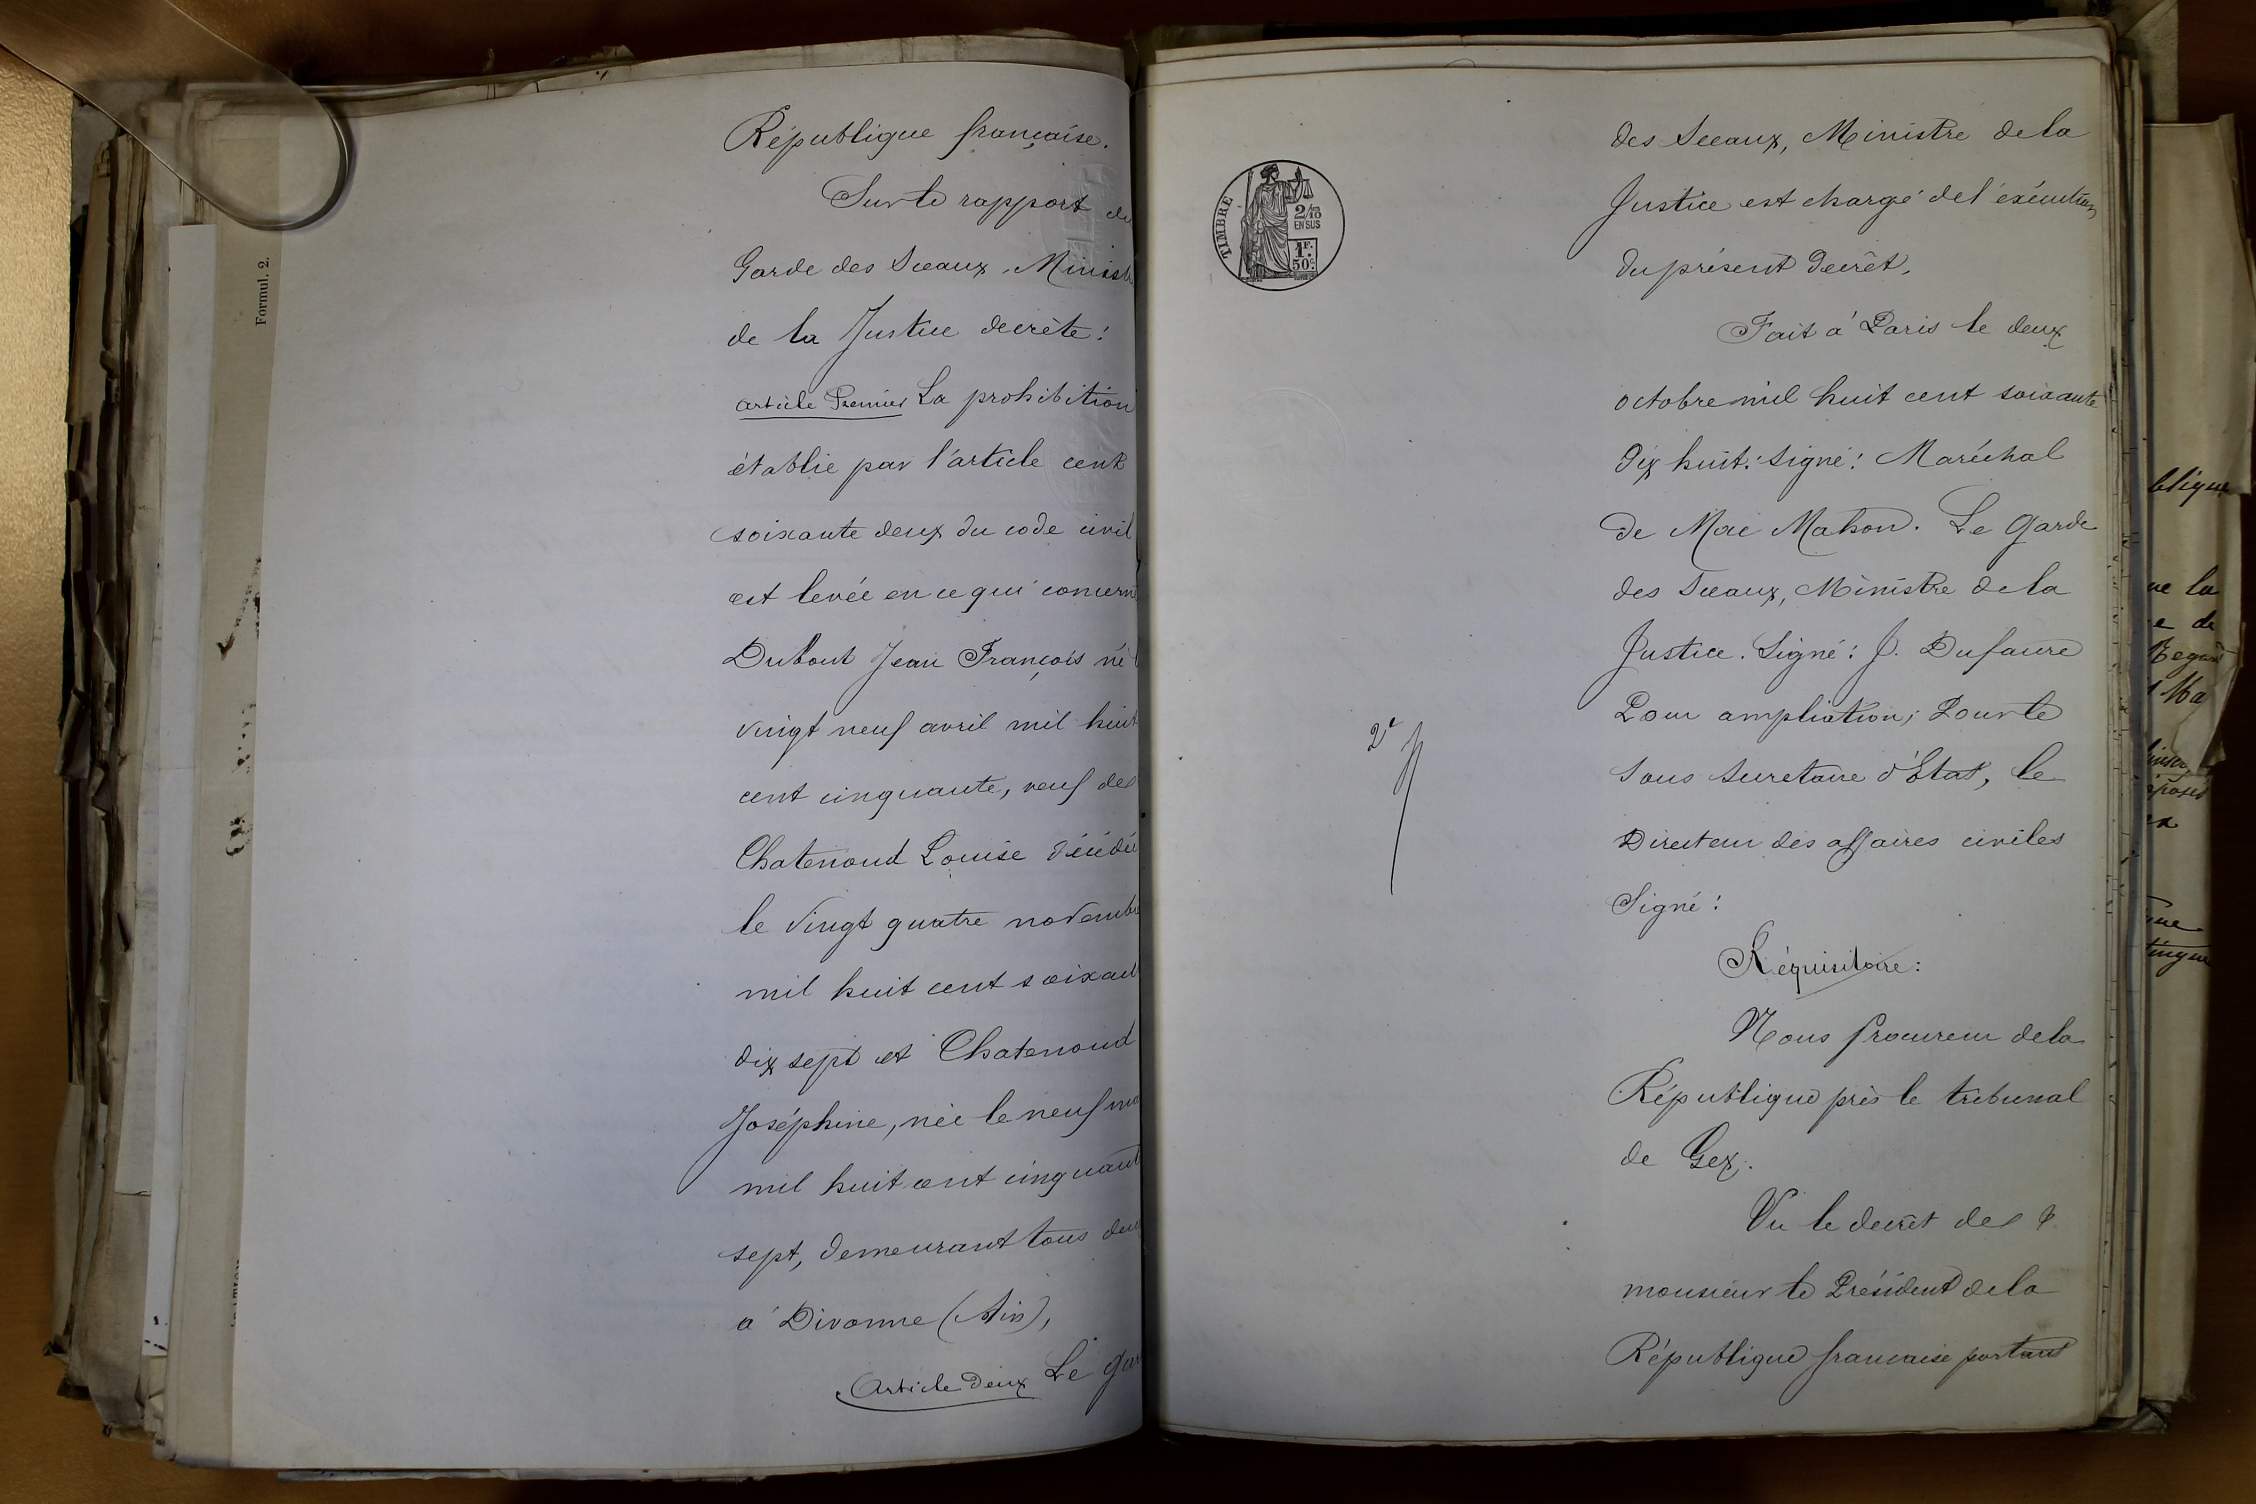 République française.
Sur le rapport du
Garde des Sceaux, Minist
de la Justice decrète :
article Premier La prohibition
établie par l'article cent
soixante deux du code civil
est levée en ce qui concern
Dubout Jean François né
vingt neuf avril mil huit
cent cinquante, veuf de
Chatenoud Louise décédée
le vingt quatre novembre
mil huit cent soixant
dix sept et Chatenoud
Joséphine, née le neuf
mil huit cent cinquant
sept, demeurant tous deux
à Divonne (Ain),
Article Deux Le gar
Formul. 2.
TIMBRE
2/10
EN SUS
1F.
50c.
des Sceaux, Ministre de la
Justice est chargé de l'éxécution
du présent Decrèt.
Fait à Paris le deux
octobre mil huit cent soixante
dix huit : signé : Maréchal
de Mac Mahon. Le Garde
des Sceaux, Ministre de la
Justice. Signé : J. Dufaure
Pour ampliation ; Pour le
Sous Secretaire d'Etat, le
Directeur des affaires civiles
Signé :
Réquisitoire :
Nous Procureur de la
République près le tribunal
de Gex.
Vu le decrèt de
monsieur le Président de la
République francaise portant
2e
blique
ue la
e de